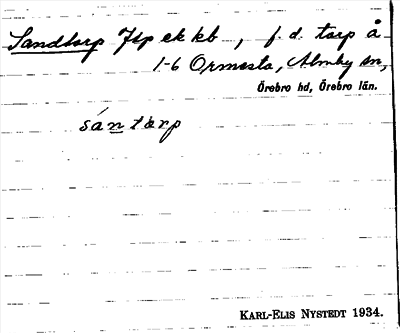 Sandtorp Jtp ek kb, f. d. torp å
1-6 Ormesta, Almby sn,
Örebro hd, Örebro län.
sán tɷrp
KARL-ELIS NYSTEDT 1934.